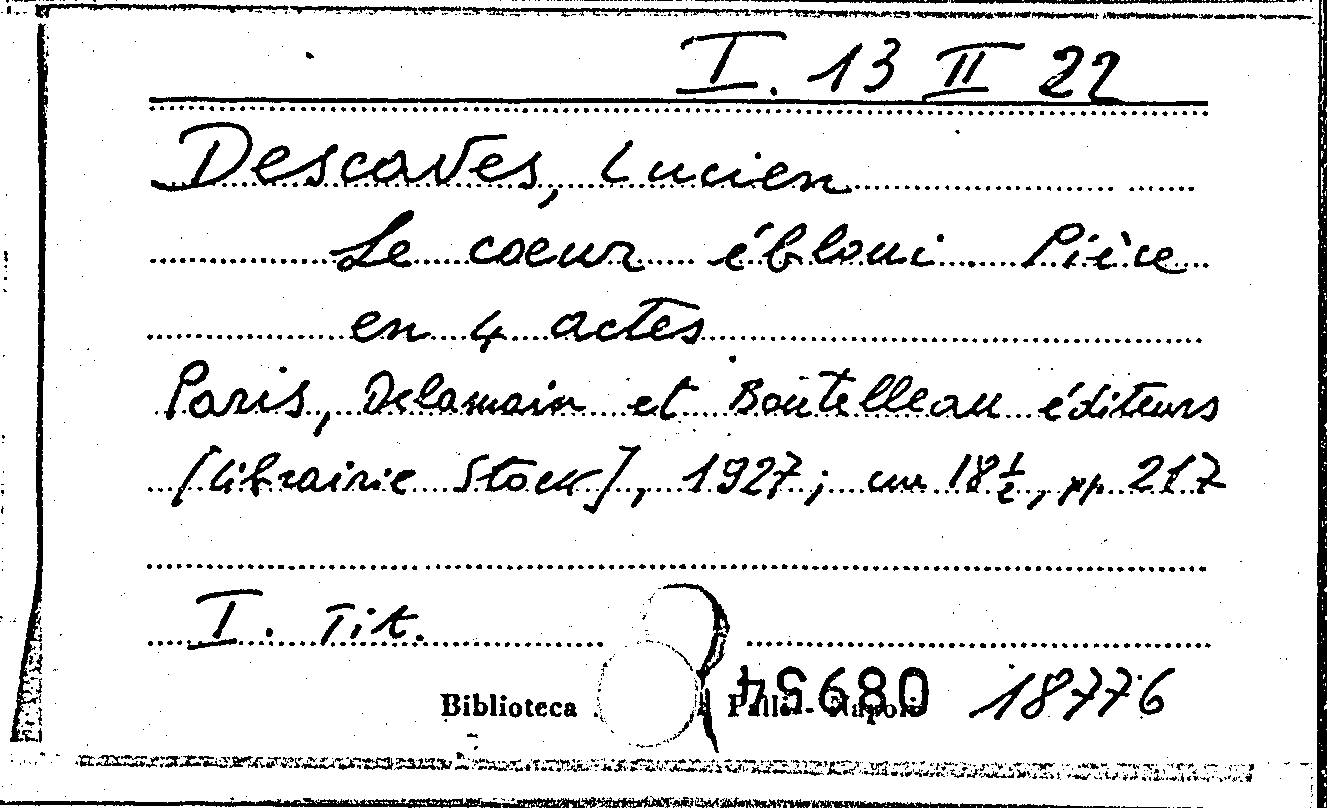 I. 13 II 22
Descaves, Lucien
Le coeur ébloui. Pièce
en 4 actes
Paris, Delamain et Boutelleau éditeurs
[Librairie Stock], 1927; cm 18½, pp. 217
I. Tit.
Biblioteca Napoli 08954 18776